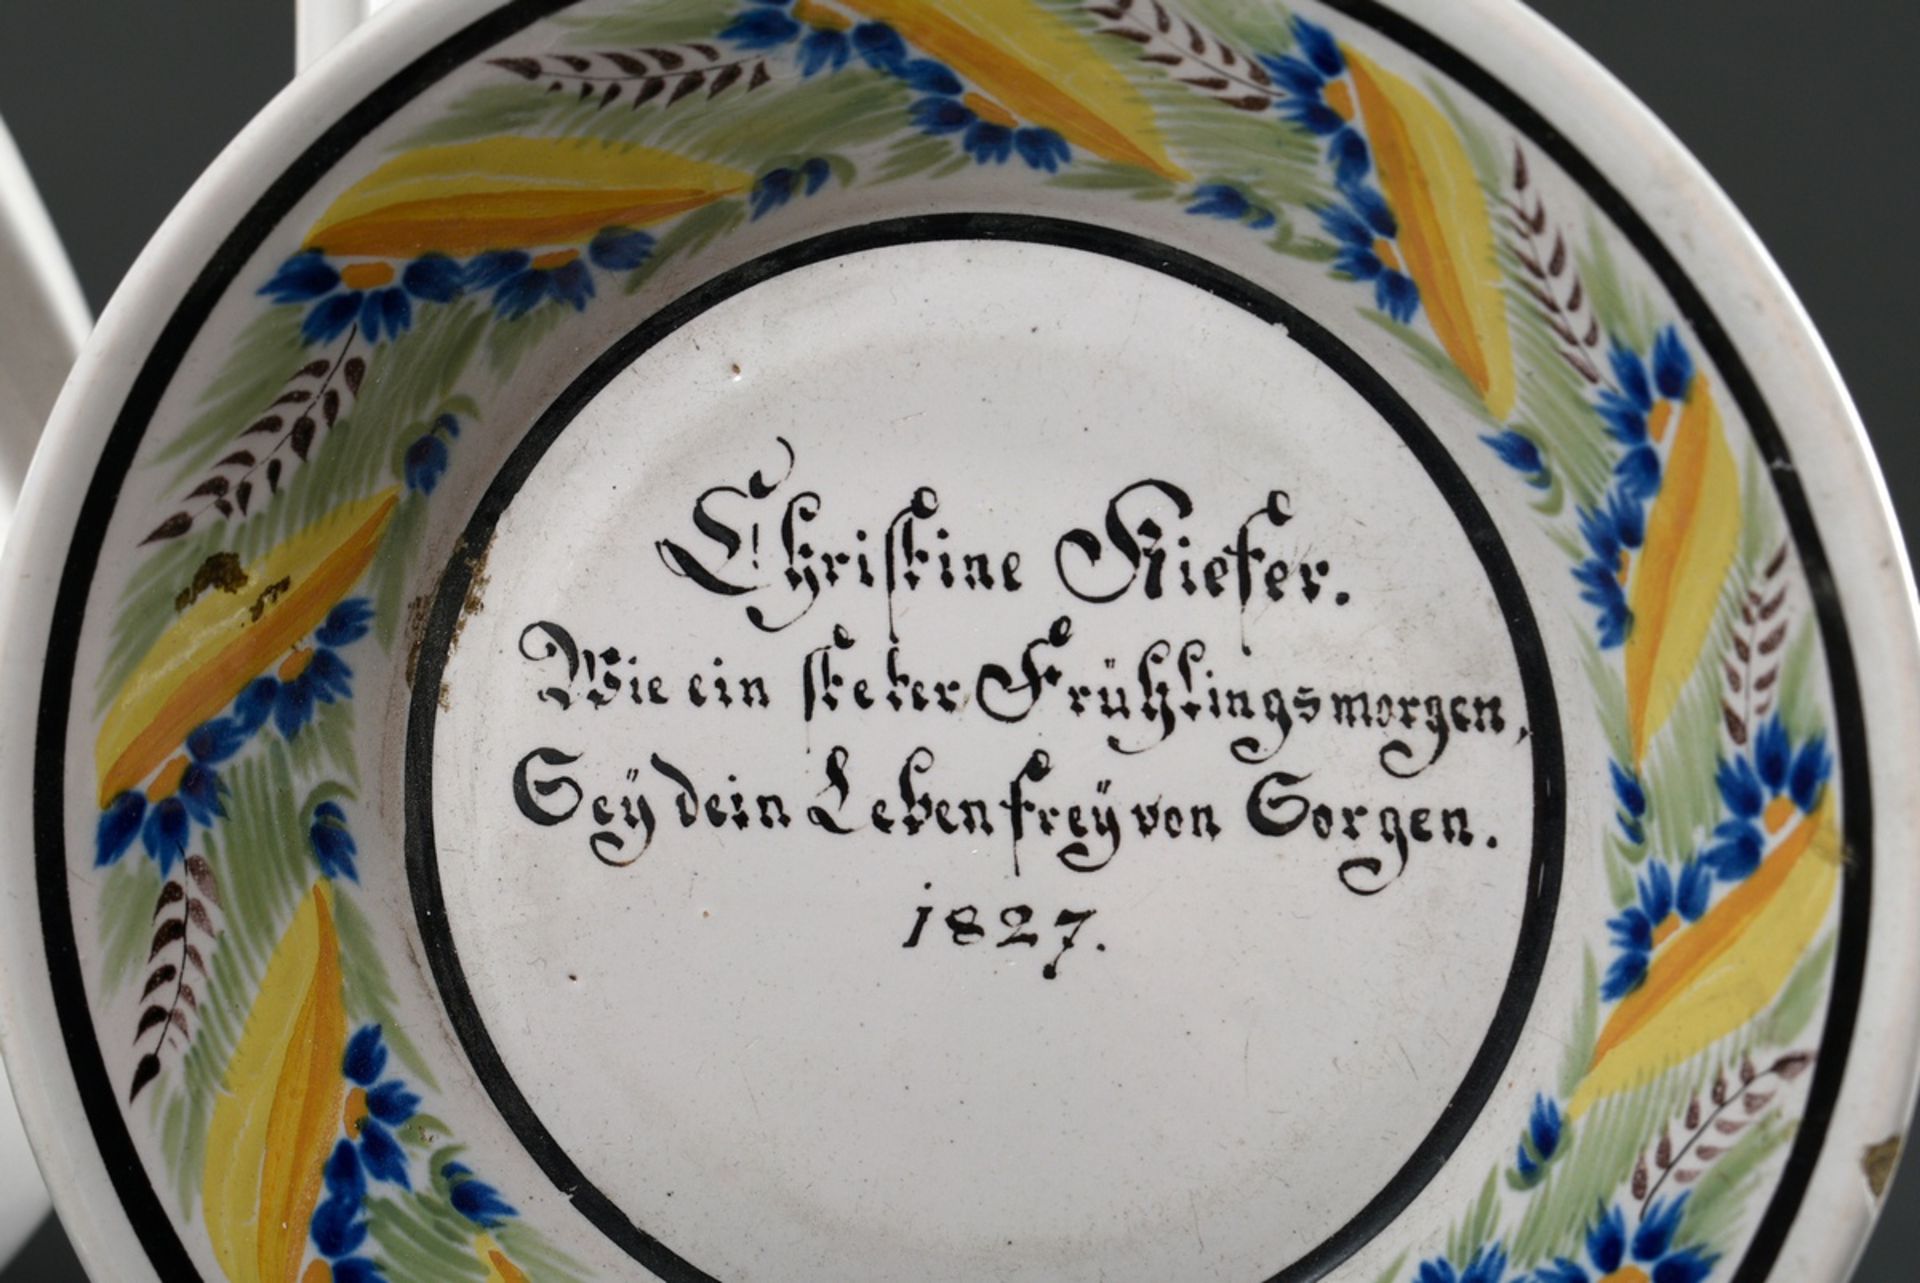 Christine Kiefer.
Wie ein steter Frühlingsmorgen,
Seÿ dein Leben freÿ von Sorgen.
1827.